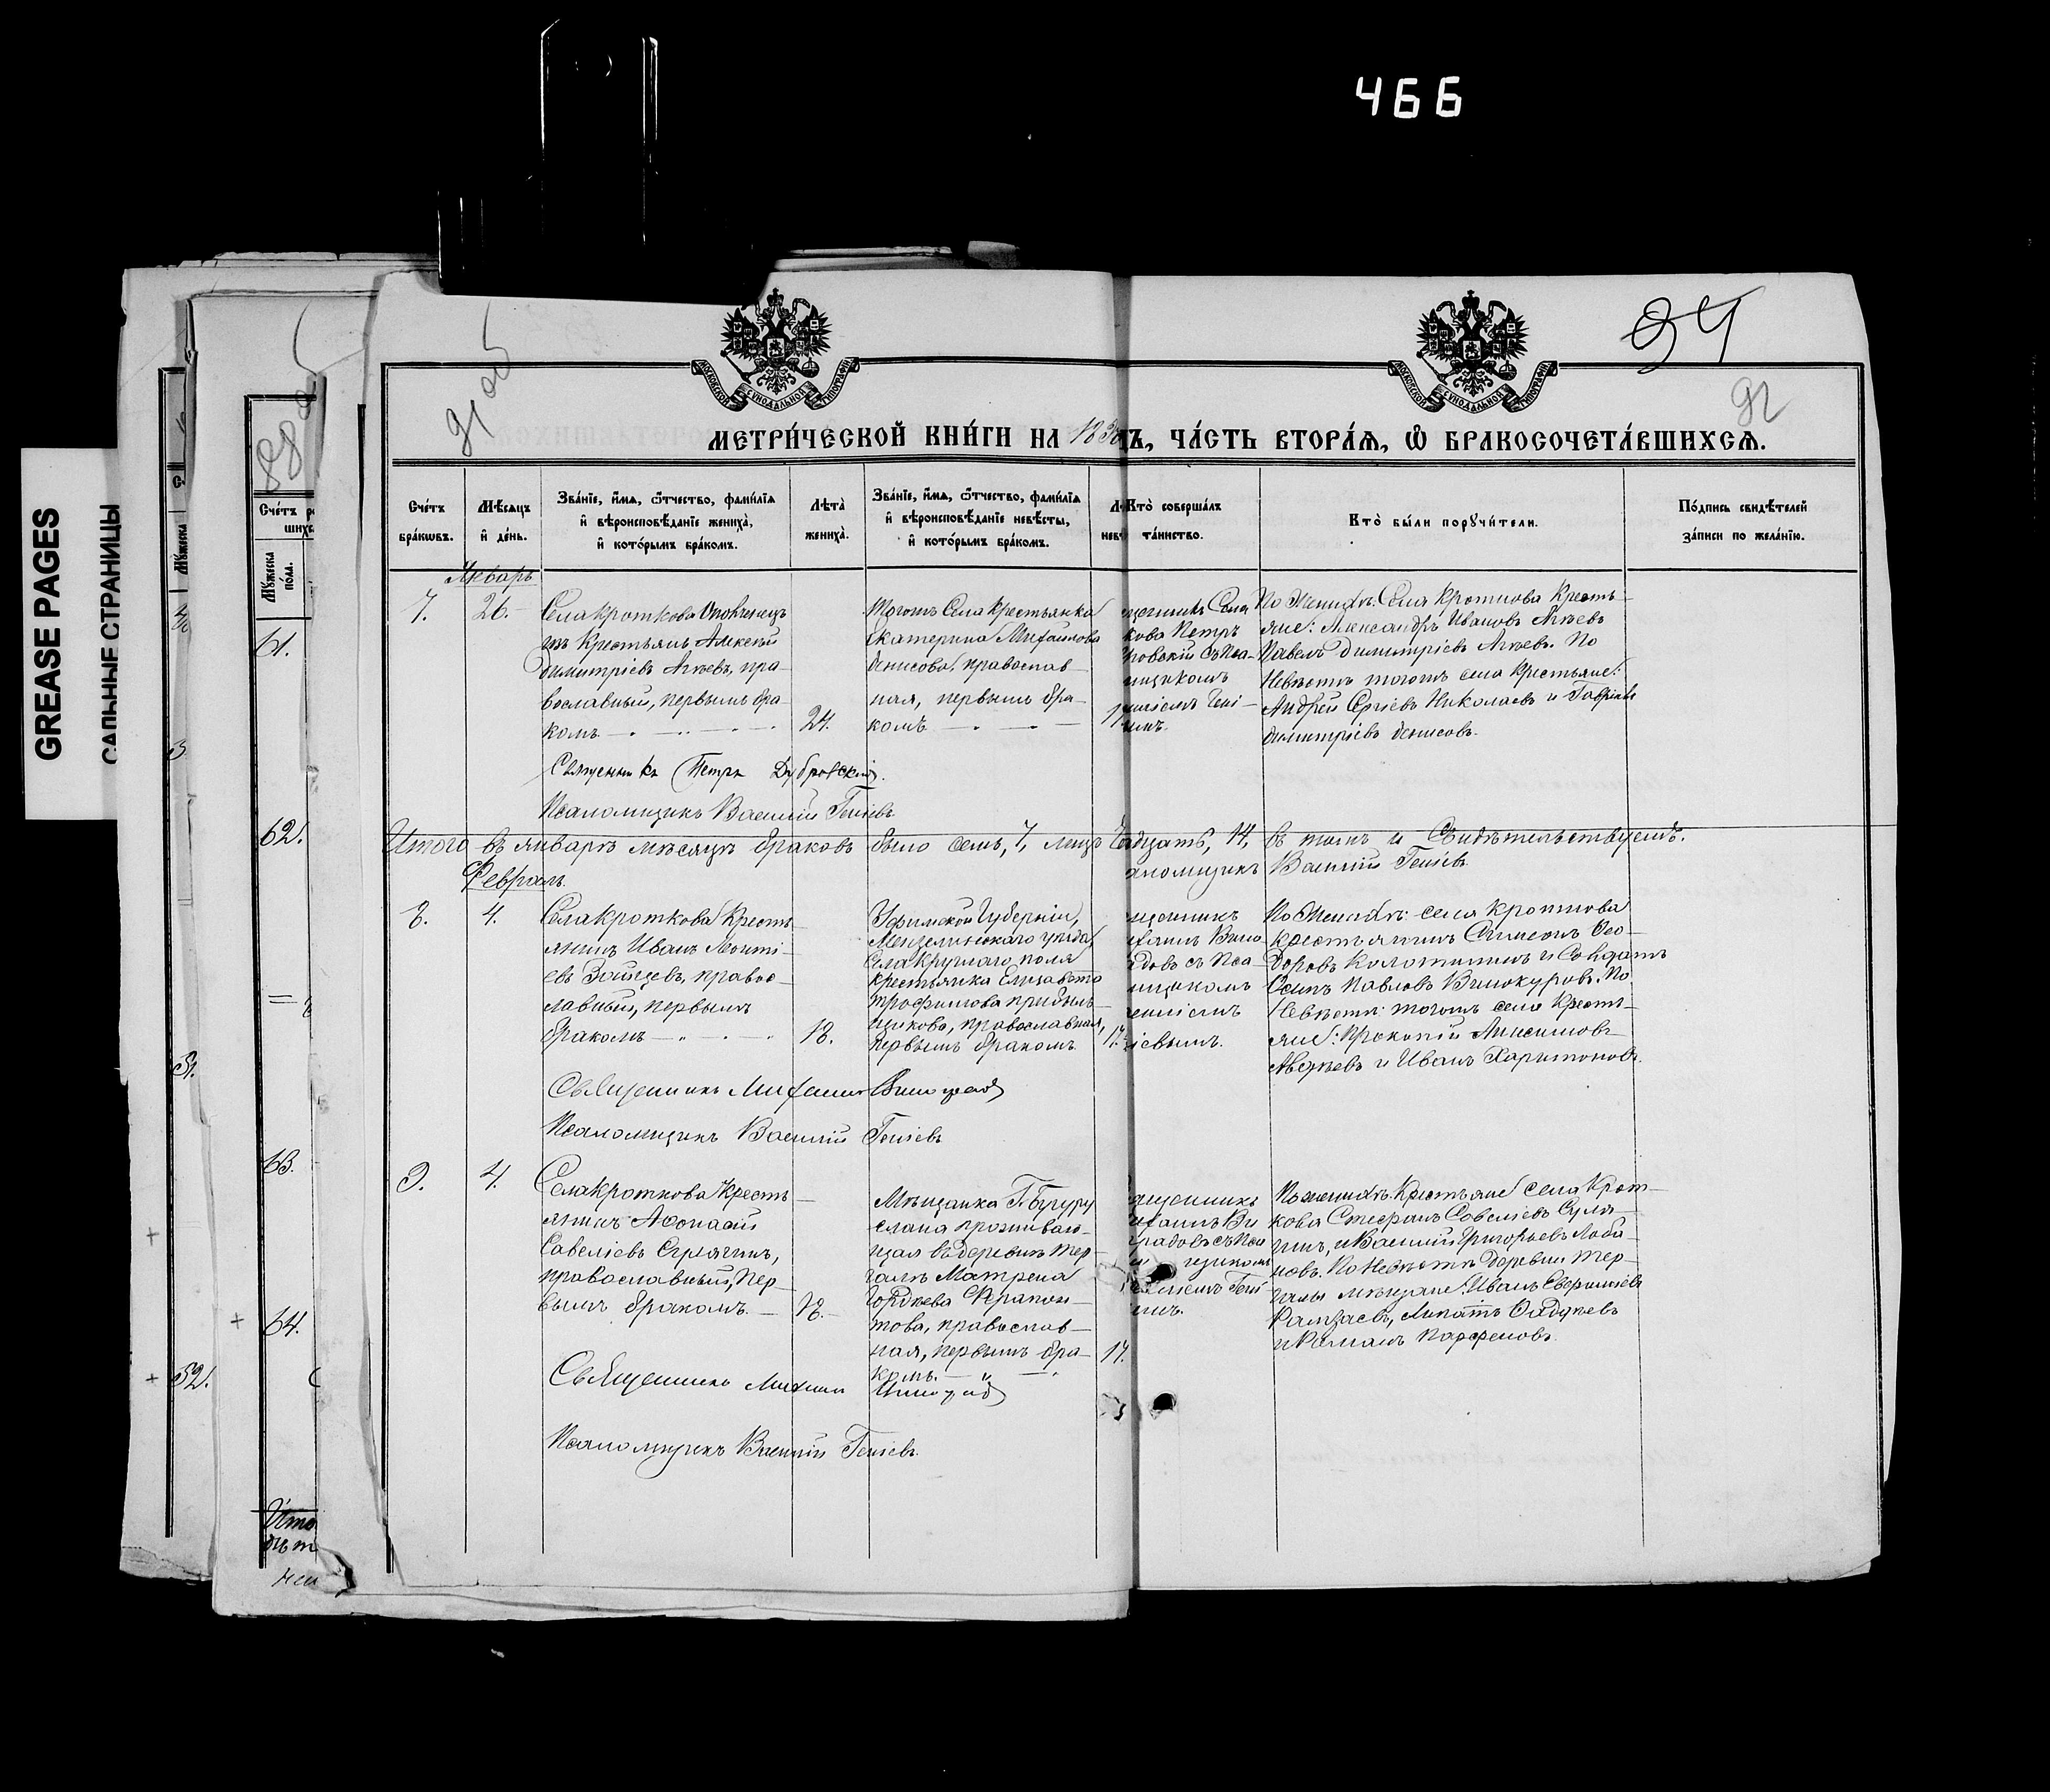 466
GREASE PAGES
САЛЬНЫЕ СТРАНИЦЫ
94
92
МОСКОВСКОЙ СУНОДАЛЬНОЙ ТИПОГРАФІИ
МОСКОВСКОЙ СУНОДАЛЬНОЙ ТИПОГРАФІИ
МЕТРИ́ЧЕСКОЙ КНИ́ГИ НА 18 Ъ, ЧА́СТЬ ВТОРА́Я, Ѽ БРАКОСОЧЕТА́ВШИХСЯ.
Сче́тъ бра́кѡвъ.
Мѣ́сяцъ и҆ де́нь.
Зва́нїе, и҆́мя, ѻ҆́тчество, фами́лїя и҆ вѣроисповѣ́данїе жениха̀, и҆ кото́рымъ бра́комъ.
Лѣта̀ жениха̀.
Зва́нїе, и҆́мя, ѻ҆́тчество, фами́лїя и҆ вѣроисповѣ́данїе невѣ́сты, и҆ кото́рымъ бра́комъ.
Кто̀ соверша́лъ та́инство.
Кто̀ бы́ли порꙋчи́тели.
По́дпись свидѣ́телей за́писи по жела́нїю.
Январь
7.
26.
Села Кроткова Ополченецъ
изъ Крестьянъ Алексѣй
Димитріевъ Агѣевъ, пра-
вославный, первымъ бра-
комъ
24.
Тогожъ Села Крестьянка
Екатерина Михайлова
Денисова, православ-
ная, первымъ бра-
комъ
щенникъ Села
кова Петръ
ровскій съ Пса-
мщикомъ
По Женихѣ: Села Кроткова Кресть-
яне: Александръ Ивановъ Агѣевъ
Павелъ Димитріевъ Агѣевъ. По
Невѣстѣ тогожъ села крестьяне:
Андрей Сергѣевъ Николаевъ и Гавріилъ
Димитріевъ Денисовъ.
Священникъ Петръ Дубровскій.
Псаломщикъ Василій Геніевъ
Итого въ январѣ мѣсяцѣ браковъ было семь, 7, лицъ надцать, 14, въ томъ и Свидѣтельствуемъ.
аломщикъ Василій Геніевъ
Февраль.
8.
4.
Села Кроткова Кресть-
янинъ Иванъ Леонті-
евъ Зайцевъ, правос-
лавный, первымъ
бракомъ
18.
Уфимской Губерніи,
Мензелинскаго уѣзда
Села Круглаго поля
крестьянка Елисавета
Трофимова Прибыль-
щикова, православная,
первымъ бракомъ.
17.
щенникъ
ихаилъ Вино-
адовъ съ Пса-
мщикомъ
іевымъ.
По Женихѣ: села Кроткова
крестьянинъ Симеонъ Ѳео-
доровъ Колотилинъ и Солдатъ
Осипъ Павловъ Винокуровъ. По
Невѣстѣ: тогожъ села Кресть-
яне: Прокопій Анисимовъ
Авдѣевъ и Иванъ Харитоновъ.
Священникъ Михаилъ Виноградовъ
Псаломщикъ Василій Геніевъ
9.
4.
Села Кроткова Кресть-
янинъ Аѳонасій
Савеліевъ Сулягинъ,
православный, пер-
вымъ бракомъ.
18.
Мѣщанка Г. Бугуру
слана проживаю-
щая въ деревнѣ Тер-
галѣ Матрена
Гордѣева Ѳерапон-
това, православ-
ная, первымъ бра-
комъ.
17.
ященникъ
ихаилъ Ви
градовъ съ Пса
По женихѣ: Крестьяне села Крот-
кова Стефанъ Савеліевъ Суля-
гинъ, и Василій Григорьевъ Лоба-
новъ. По Невѣстѣ деревни Тер-
галы мѣщане: Иванъ Евфиміевъ
и Романъ Парфеновъ.
Священникъ Михаилъ Виноградовъ
Псаломщикъ Василій Геніевъ.
Сче́тъ
Мꙋ́жеска по́ла.
61.
62.
63.
64.
51.
52.
Итого